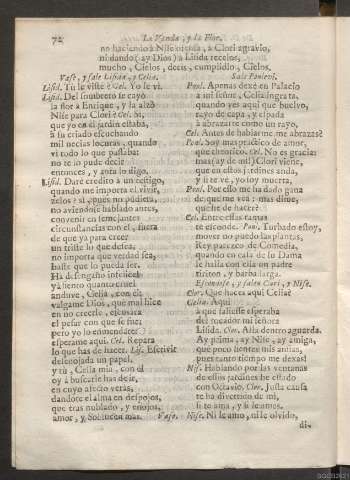 72 La Vanda, y la Flor.
no haciendo à Nise ofensa, à Clori agravio,
ni dando (ay Dios) à Lisida recelos,
mucho, Cielos, decis, cumplidlo, Cielos.
Vase, y sale Lisida, y Celia.
Lisid. Tu le viste? Cel. Yo le vi.
Lisid. Del sombrero se cayò
la flor à Enrique, y la alzò
Nise para Clori? Cel. Si,
que yo en el jardin estaba,
à su criado escuchando
mil necias locuras, quando
vi todo lo que passaba:
no te lo pude decir
entonces, y aora lo digo.
Lisid. Darè credito à un testigo,
quando me importa el vivir,
zelos? si, pues no pudiera,
no aviendose hablado antes,
convenir en semejantes
circunstancias con el, fuera
de que ya para creer
un triste lo que desea,
no importa que verdad sea,
baste que lo pueda ser.
Ha de
y à
anduve, Celia, con el!
valgame Dios, què mal hice
en no creerle, escusara
el pesar con que se fue;
pero yo lo enmendarè:
esperame aqui. Cel. Repara
lo que has de hacer. Lis. Escrivir
desenojada un papel,
y tù, Celia mia, con el
oy à buscarle has de ir,
en cuyo afecto veràs,
dandote el alma en despojos,
que tras nublado, y enojos,
amor, y Sol lucen mas. Vase.
Sale Ponlevì.
Ponl. Apenas dexè en Palacio
à mi señor, Celia ingrata,
quando yes aqui que buelvo,
rayo de capa, y espada
à abrazarte como un rayo.
Cel. Antes de hablarme me abrazas?
Ponl. Soy mas practico de amor,
que theorico. Cel. No es gracia:
mas (ay de mì) Clori viene,
que en estos jardines anda,
y si te vè, yo soy muerta.
Ponl. Por esso me ha dado gana
de que me vea; mas dime,
què he de hacer?
Cel. Entre estas ramas
te esconde. Ponl. Turbado estoy,
mover no puedo las plantas,
Rey parezco de Comedia,
quando en casa de su Dama
le halla con ella un padre
tiriton, y barba larga.
Escondese, y salen Clori, y Nise.
Clor. Què haces aqui Celia?
Celia. Aqui
à que saliesse esperaba
del tocador mi señora
Lisida. Clor. Allà dentro aguarda.
Ay prima, ay Nise, ay amiga,
què poco sientes mis ansias,
pues tanto tiempo me dexas!
Nis. Hablando por las ventanas
de estos jardines he estado
con Octavio. Clor. Justa causa
te ha divertido de mì,
si te ama, y si le amas.
Nise. Ni le amo, ni le olvido,
di-